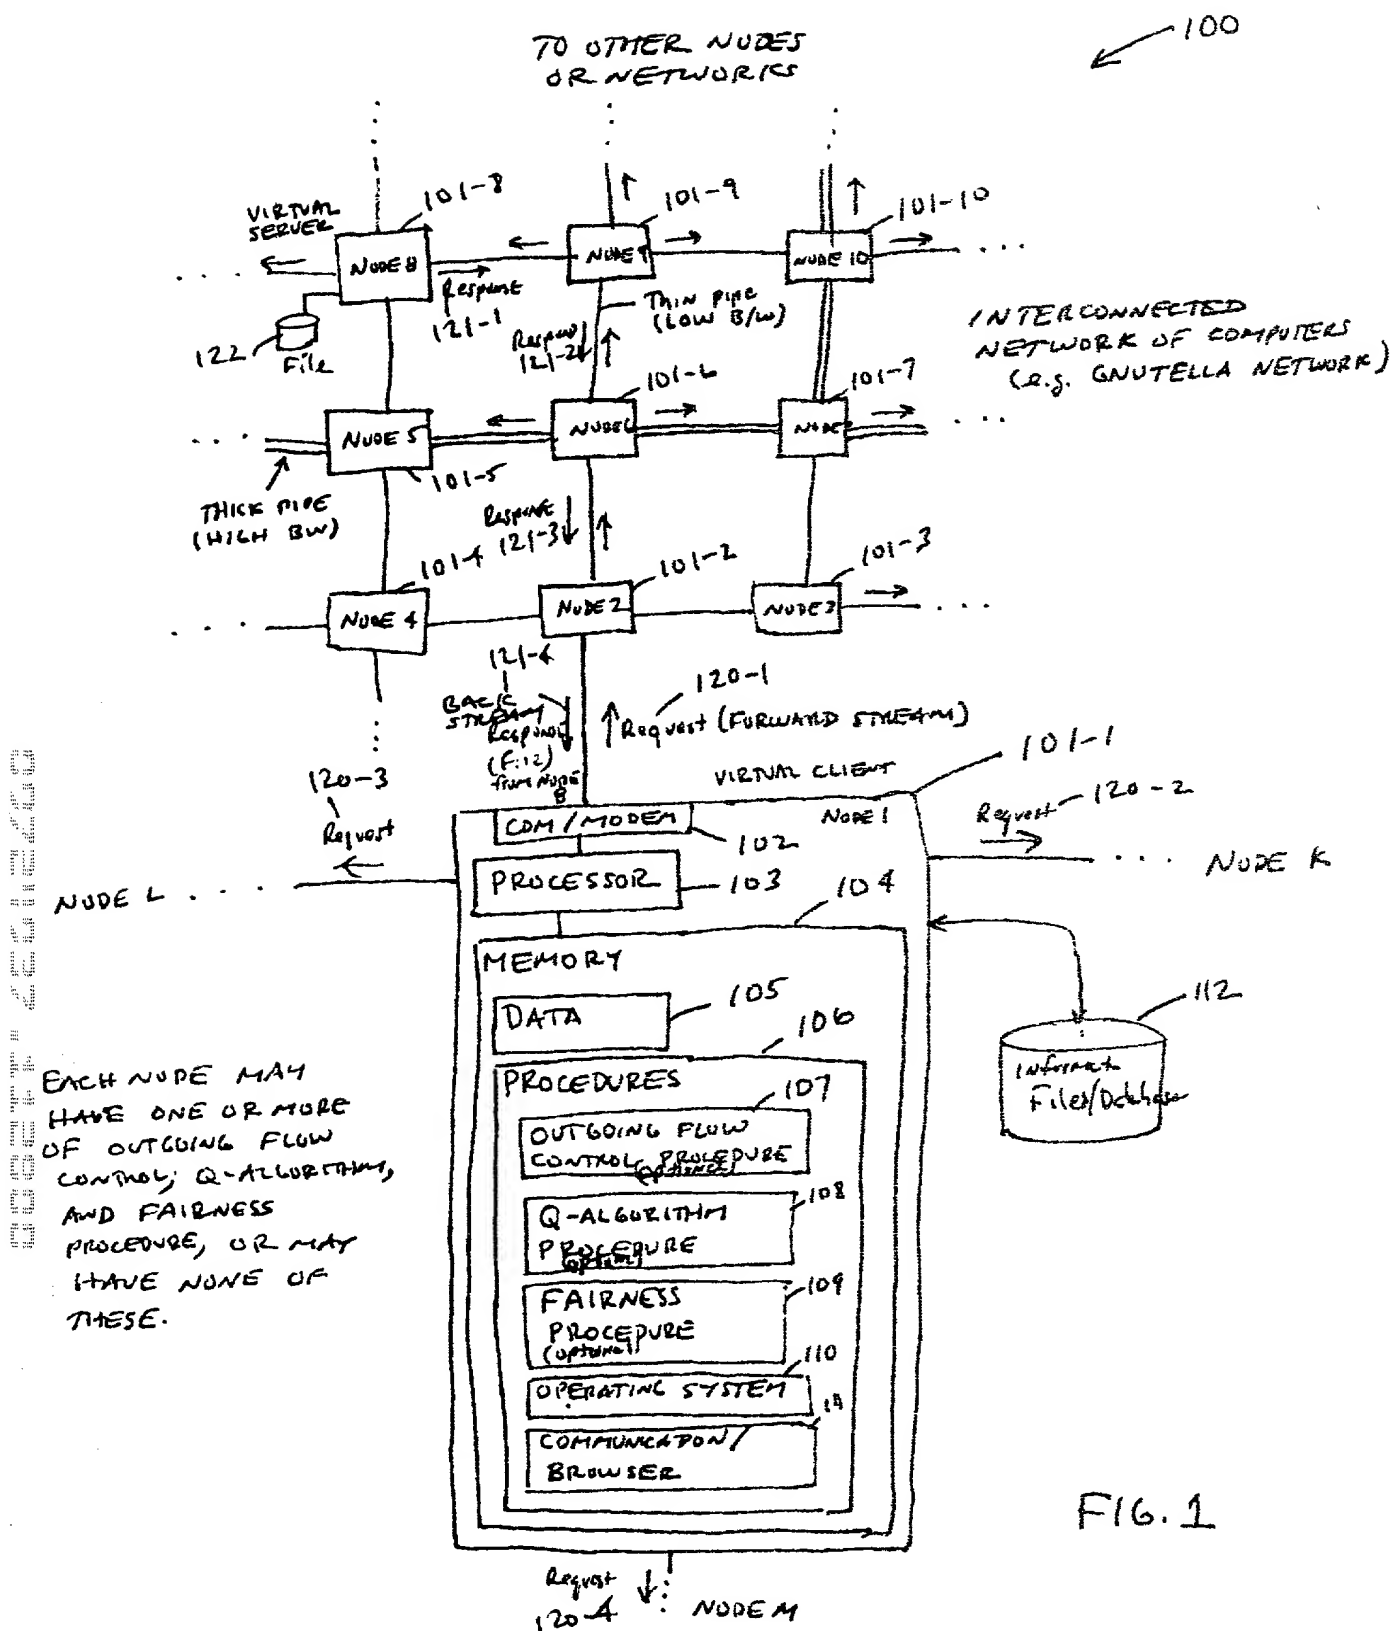 100
TO OTHER NODES
OR NETWORKS
101-8
101-9
101-10
VIRTUAL
SERVER
NODE 8
NODE 9
NODE 10
Response
121-1
THIN PIPE
(LOW B/W)
122
File
121-2
INTERCONNECTED
NETWORK OF COMPUTERS
(e.g. GNUTELLA NETWORK)
101-6
101-7
NODE 5
NODE 6
NODE
101-5
THICK PIPE
(HIGH BW)
Response
121-3
101-4
101-2
101-3
NODE 4
NODE 2
NODE 3
121-4
120-1
BACK
STREAM
Response
(File)
from NODE
8
Request (FORWARD STREAM)
101-1
120-3
Request
VIRTUAL CLIENT
NODE 1
Request
120-2
COM/MODEM
102
NODE K
PROCESSOR
103
104
NODE L
MEMORY
DATA
105
106
112
Files/Database
PROCEDURES
107
OUTGOING FLOW
CONTROL PROCEDURE
(optional)
108
Q-ALGORITHM
PROCEDURE
(optional)
109
FAIRNESS
PROCEDURE
(optional)
110
OPERATING SYSTEM
COMMUNICATION/
BROWSER
EACH NODE MAY
HAVE ONE OR MORE
OF OUTGOING FLOW
CONTROL, Q-ALGORITHM,
AND FAIRNESS
PROCEDURE, OR MAY
HAVE NONE OF
THESE.
FIG. 1
Request
120-4
NODE M